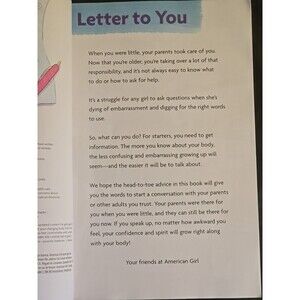 Letter to You
When you were little, your parents took care of you.
Now that you're older, you're taking over a lot of that
responsibility, and it's not always easy to know what
to do or how to ask for help.
It's a struggle for any girl to ask questions when she's
dying of embarrassment and digging for the right words
to use.
So, what can you do? For starters, you need to get
information. The more you know about your body,
the less confusing and embarrassing growing up will
seem—and the easier it will be to talk about.
We hope the head-to-toe advice in this book will give
you the words to start a conversation with your parents
or other adults you trust. Your parents were there for
you when you were little, and they can still be there for
you now. If you speak up, no matter how awkward you
feel, your confidence and spirit will grow right along
with your body!
Your friends at American Girl